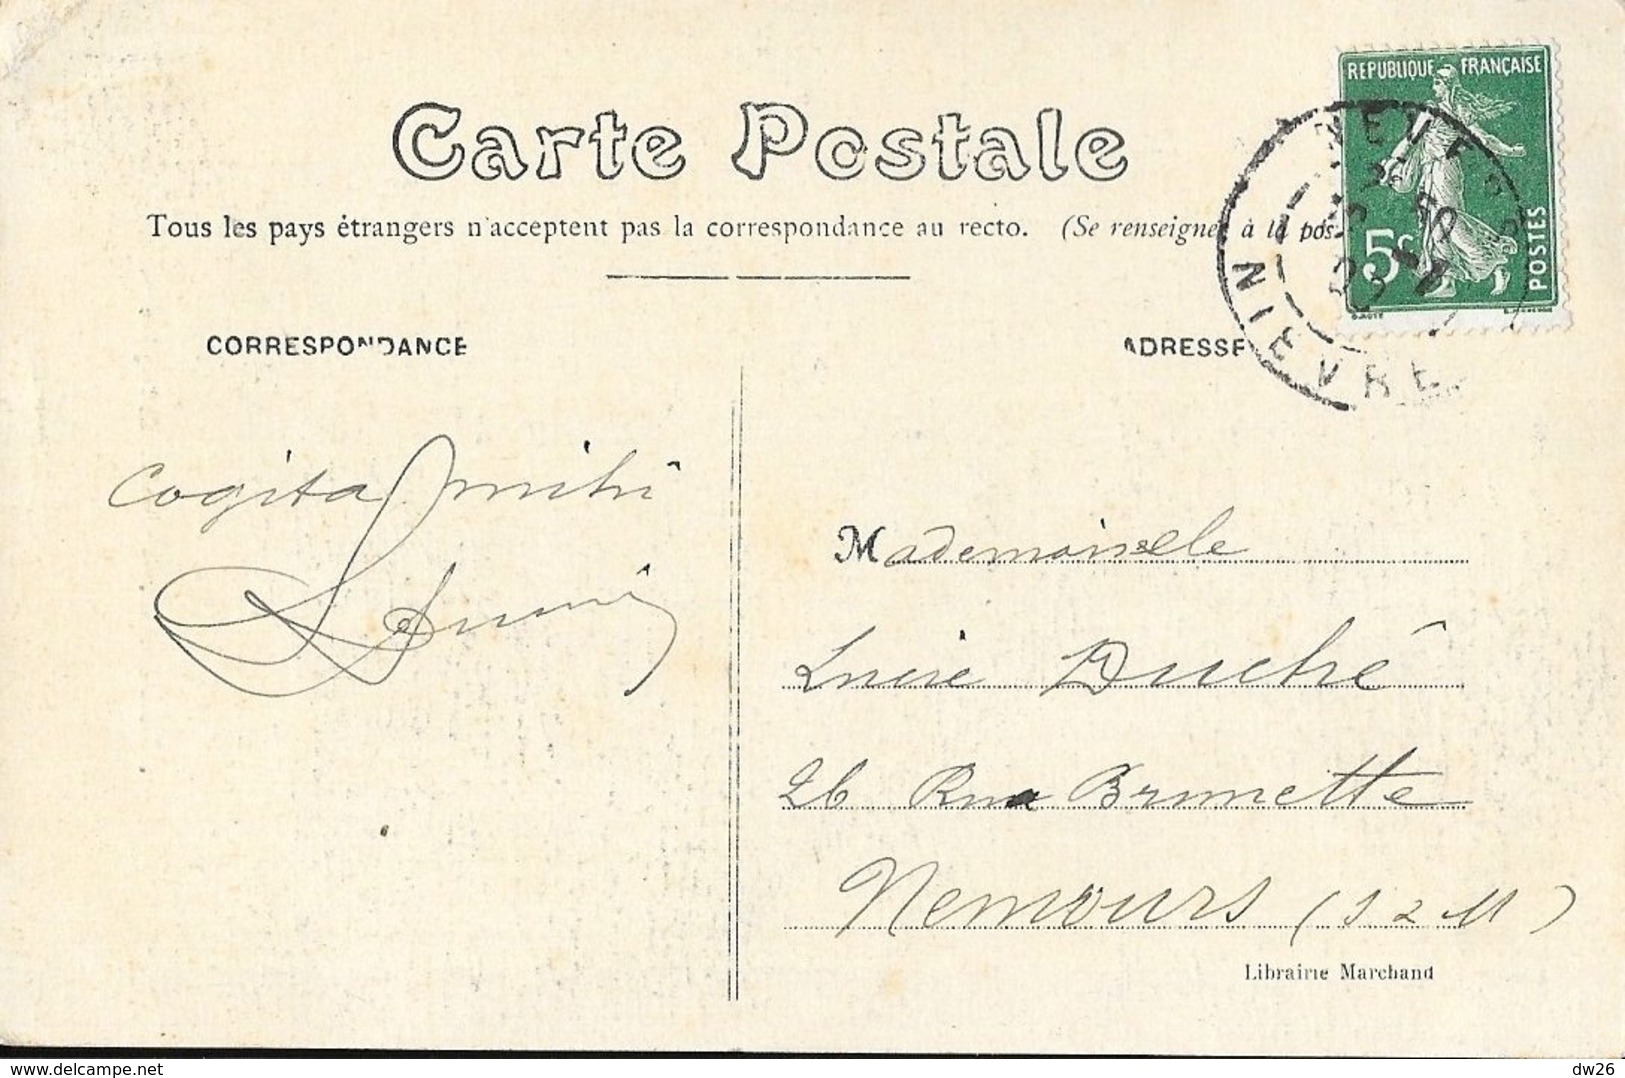 REPUBLIQUE FRANÇAISE
Carte Postale
Tous les pays étrangers n'acceptent pas la correspondance au recto. (Se renseigner à la pos
5c
POSTES
NIEVRE
CORRESPONDANCE
ADRESSE
Cogita mihi
Mademoiselle
Lucie Duché
26 Rue Brunette
Nemours (S & M)
Librairie Marchand
www.delcampe.net
dw26